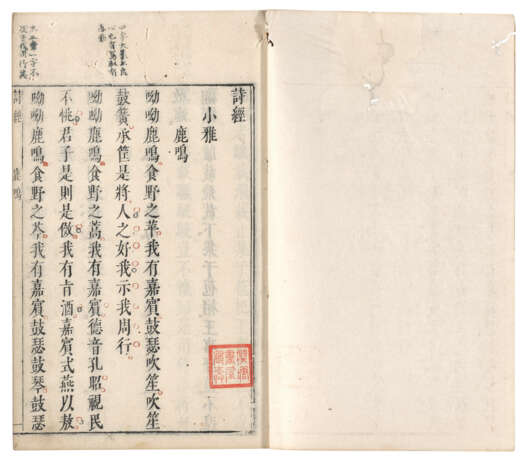 詩經
小雅
鹿鳴
呦呦鹿鳴食野之苹我有嘉賓鼓瑟吹笙吹笙
鼓簧承筐是將人之好我示我周行
呦呦鹿鳴食野之蒿我有嘉賓德音孔昭視民
不恌君子是則是傚我有旨酒嘉賓式燕以敖
呦呦鹿鳴食野之芩我有嘉賓鼓瑟鼓琴鼓瑟
詩經 鹿鳴